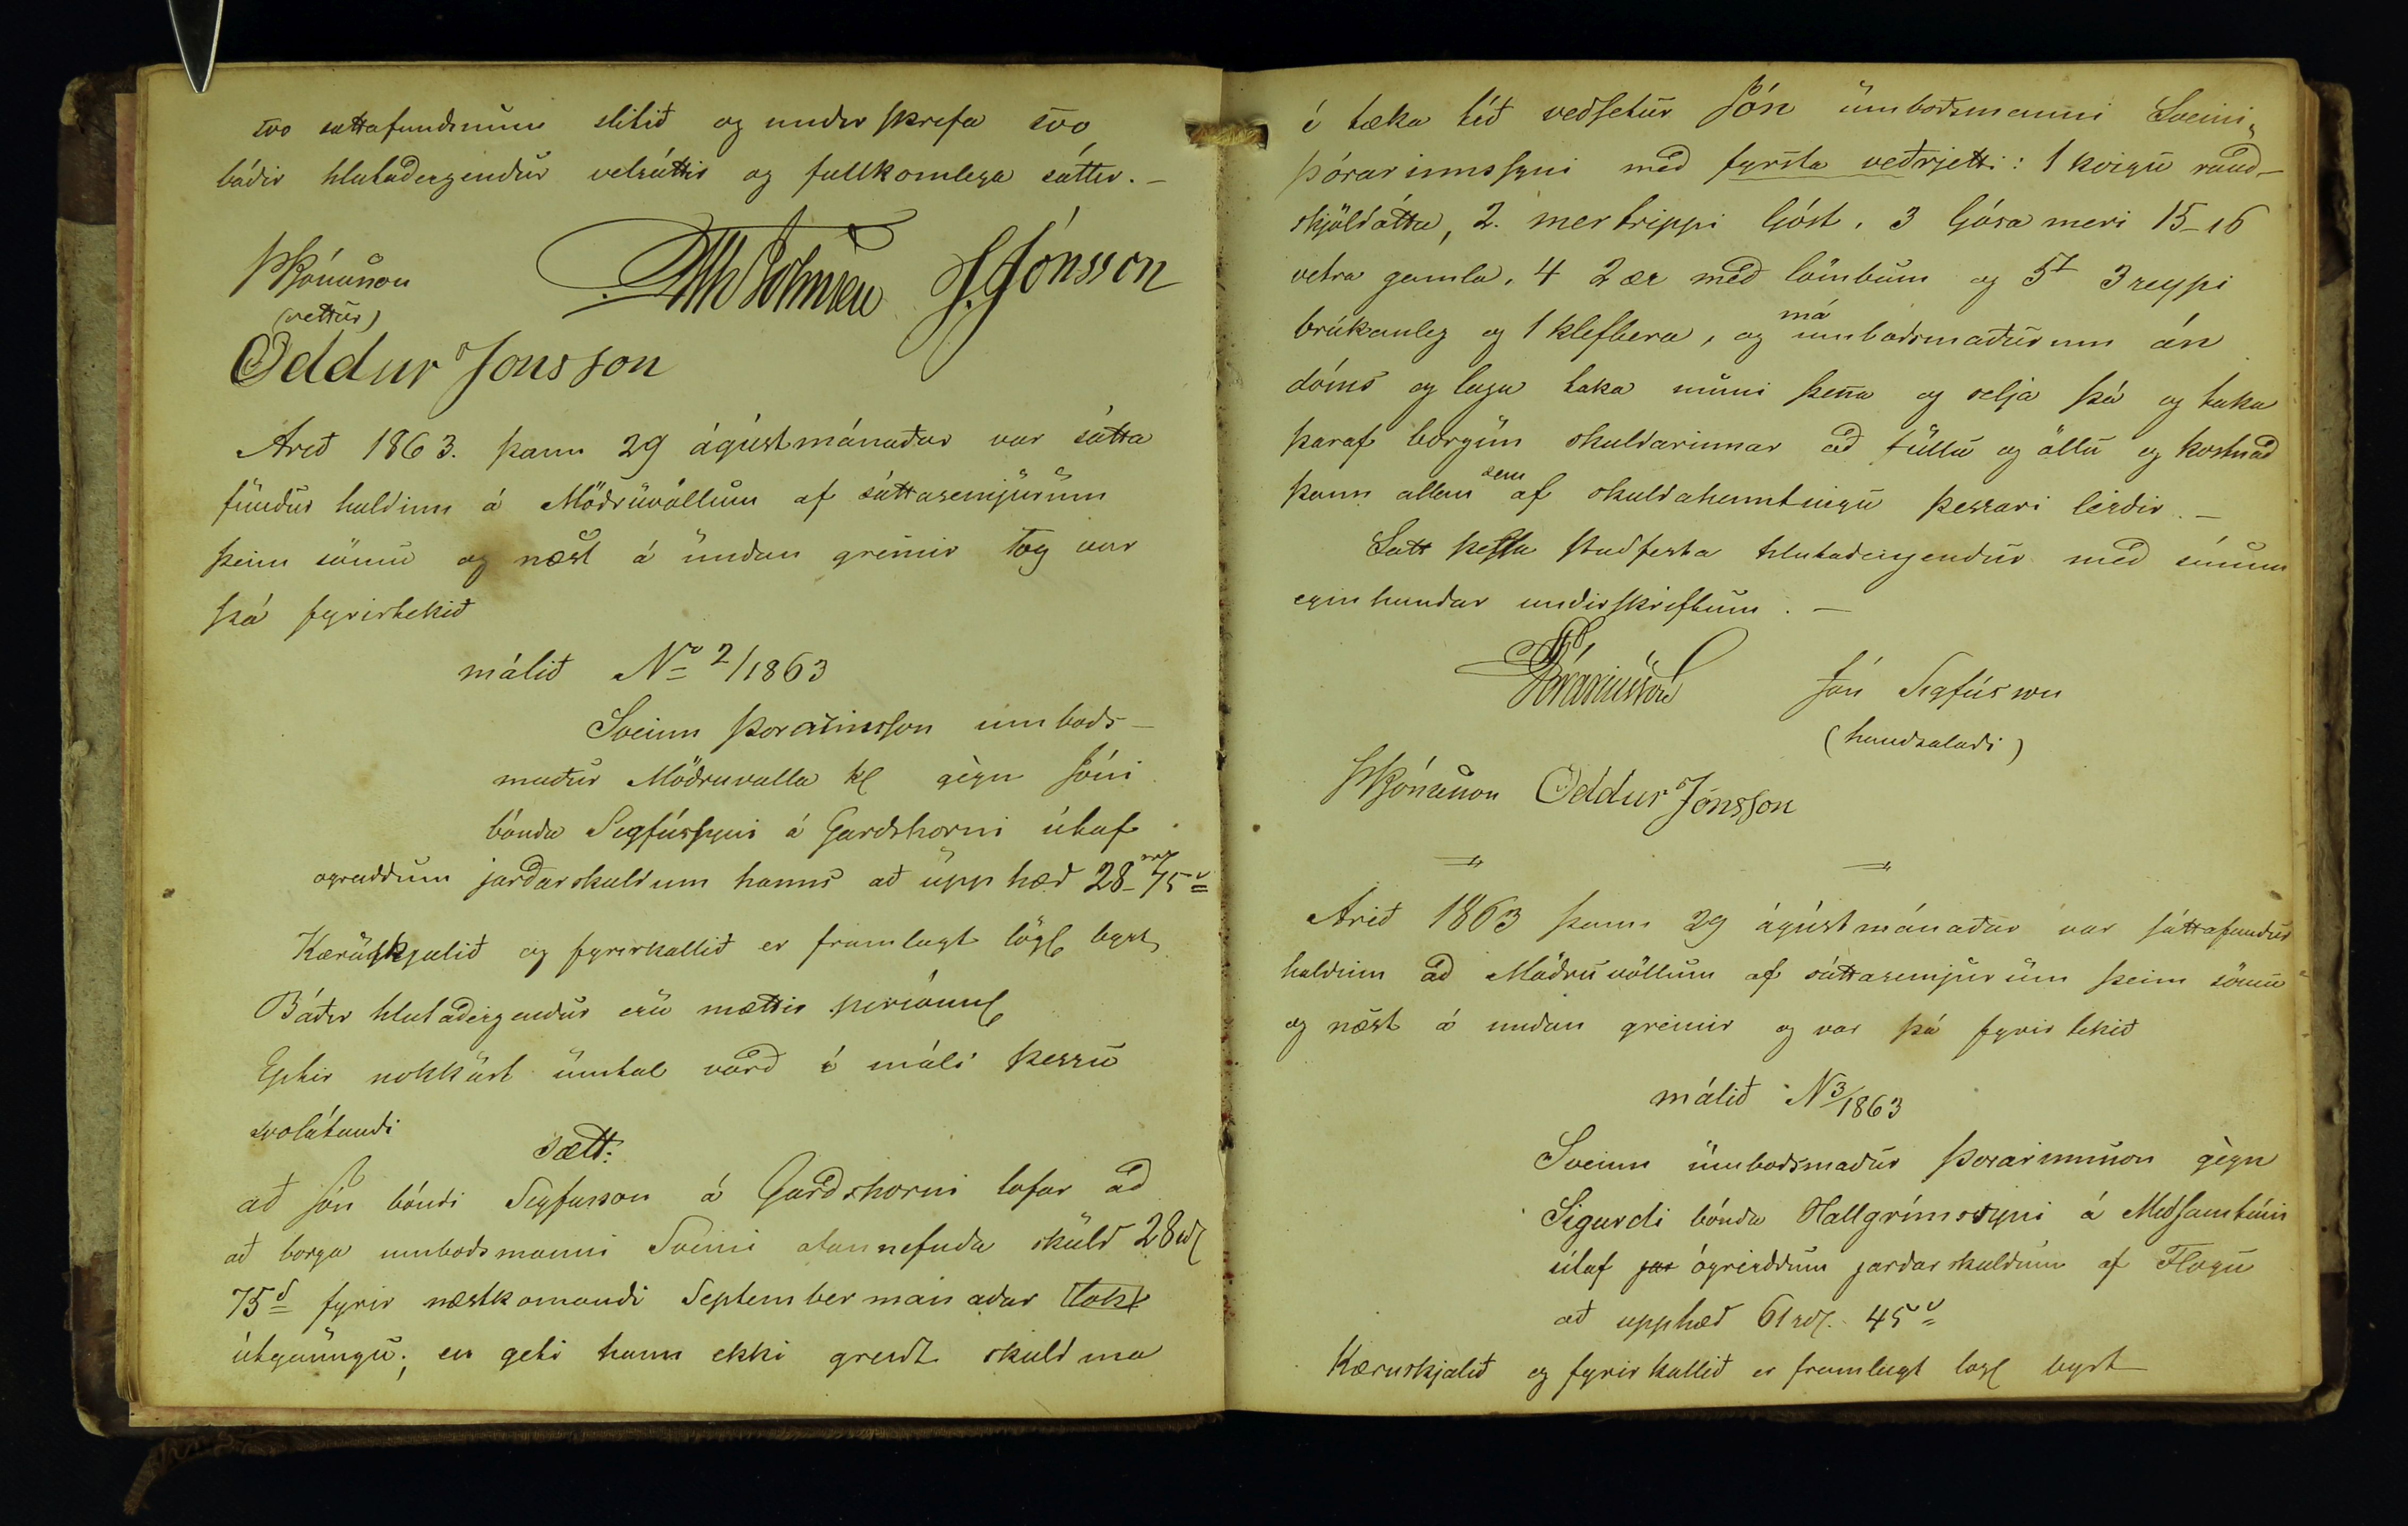 svo sattafundinum slitið og undir skrifa svo
báðir hlutaðeigendur velsáttir og fullkomlega sáttir. –
J. Jónsson
(vottur)
Oddur Jonsson
Arið 1863. þann 29 ágústmánaðar var sátta
fundur haldinn á Möðruvöllum af sáttasemjurum
þeim sömu og næst á undan greinir og var
þá fyrirtekið
málið No 2/1863
Sveinn Þorarinsson umboðs–
maður Möðruvalla kl gègn Jóni
bónda Sigfússyni á Garðshorni útaf
ogreiddum jarðarskuldum hanns að upp hæð 28 rd 75 s
Kæruskjalið og fyrirkallið er framlagt lögl lýst
Báðir hlutaðeigendur eru mættir persónul
Eptir nokkurt umtal varð í máli þessu
svolátandi
sætt:
að Jón bóndi Sigfusson á Garðshorni lofar að
að borga umboðsmanni Sveini ofannefnda skuld 28 rd
75 s fyrir næstkomandi September mánaðar
útgaungu; en geti hann ekki greidt skuld ina
í tæka tíð veðsetur Jón umboðsmanni Sveini
Þórarinnssyni með fyrsta veðrjetti: 1 kvigu rauð–
skjöldótta, 2. mertrippi ljóst. 3 ljósa meri 15–16
vetra gamla. 4 2 ær með lömbum og 5t 3 reypi
brúkanleg og 1 klefbera, og má umboðsmaðurinn án
dóms og laga taka muni þena og selja þá og taka
þaraf borgun skuldarinnar að fullu og öllu og kostnað
þann allan sem af skuldaheimtingu þessari leiðir. –
Satt þessa staðfesta hlutaðeigendur með sínum
eginhandar undirskriftum. –
Þórarinsson Jón Sigfússon
(handsalaði)
Oddur Jónsson
Arið 1863 þann 29 ágústmánaðar var sáttafundur
haldinn að Möðruvöllum af sáttasemjurum þeim sömu
og næst á undan greinir og var þá fyrir tekið
málið N 3/1863
Sveinn umboðsmaður Þorarinnson gègn
Sigurdi bónda Hallgrímssyni á Miðsamtúni
útaf jar ógreiddum jarðarskuldum af Flögu
að upphæð 61 rd. 45 s
Kæruskjalið og fyrir kallið er framlagt logl lyst